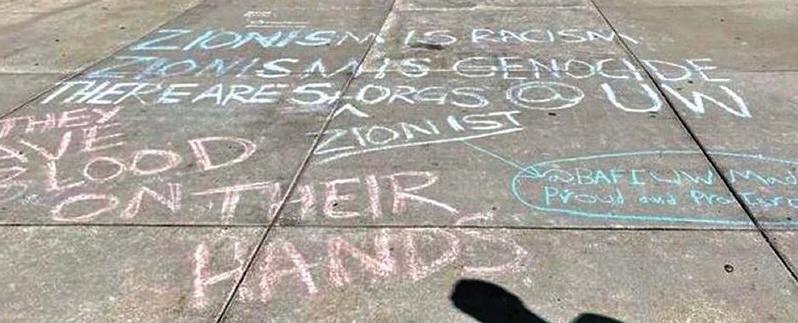 ZIONISM IS RACISM
ZIONISM IS GENOCIDE
THERE ARE 5 ORGS @ UW
ZIONIST
THEY
BLOOD
ON THEIR
HANDS
BAFI UW Mad
Proud and Pro